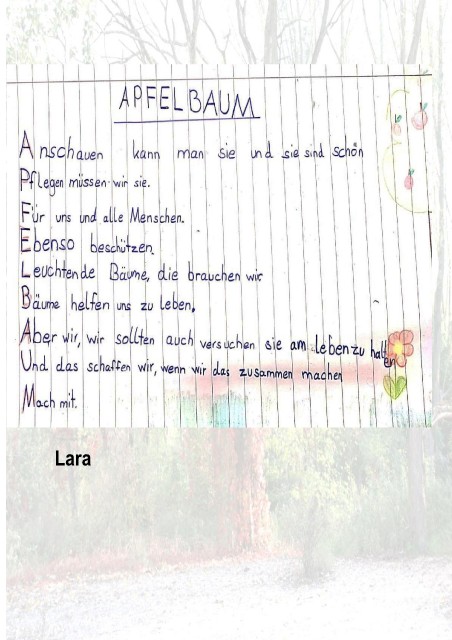 APFELBAUM
Anschauen kann man sie und sie sind schön
Pflegen müssen wir sie.
Für uns und alle Menschen.
Ebenso beschützen.
Leuchtende Bäume, die brauchen wir
Bäume helfen uns zu leben.
Aber wir, wir sollten auch versuchen sie am leben zu halten
Und das schaffen wir, wenn wir das zusammen machen
Mach mit.
Lara